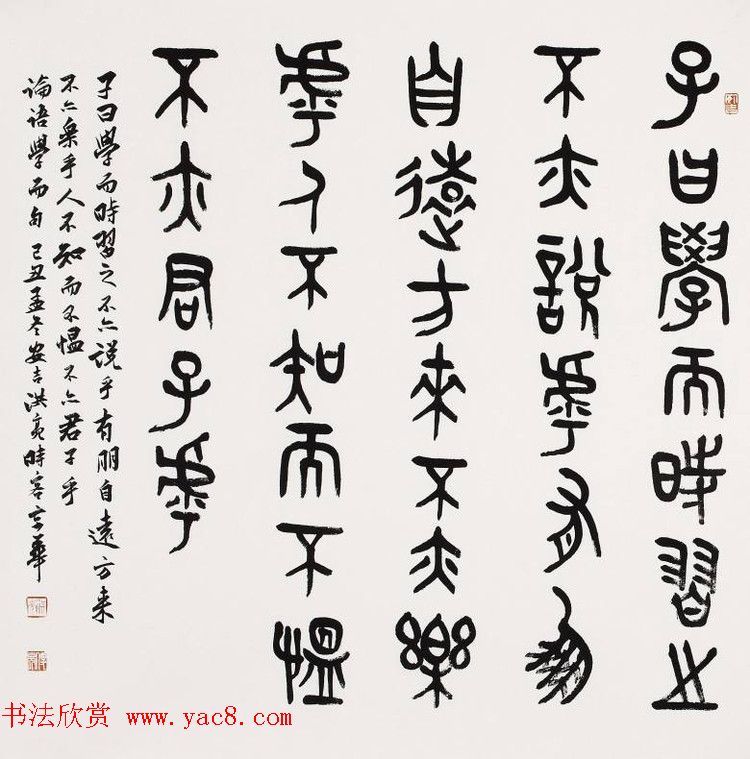 子曰學而時習之
不亦說虖有朋
自遠方來不亦樂
虖人不知而不慍
不亦君子虖
子曰學而時習之不亦説乎有朋自遠方来
不亦樂乎人不知而不愠不亦君子乎
論語學而句 己丑孟冬安吉洪亮時客京華
书法欣赏 www.yac8.com